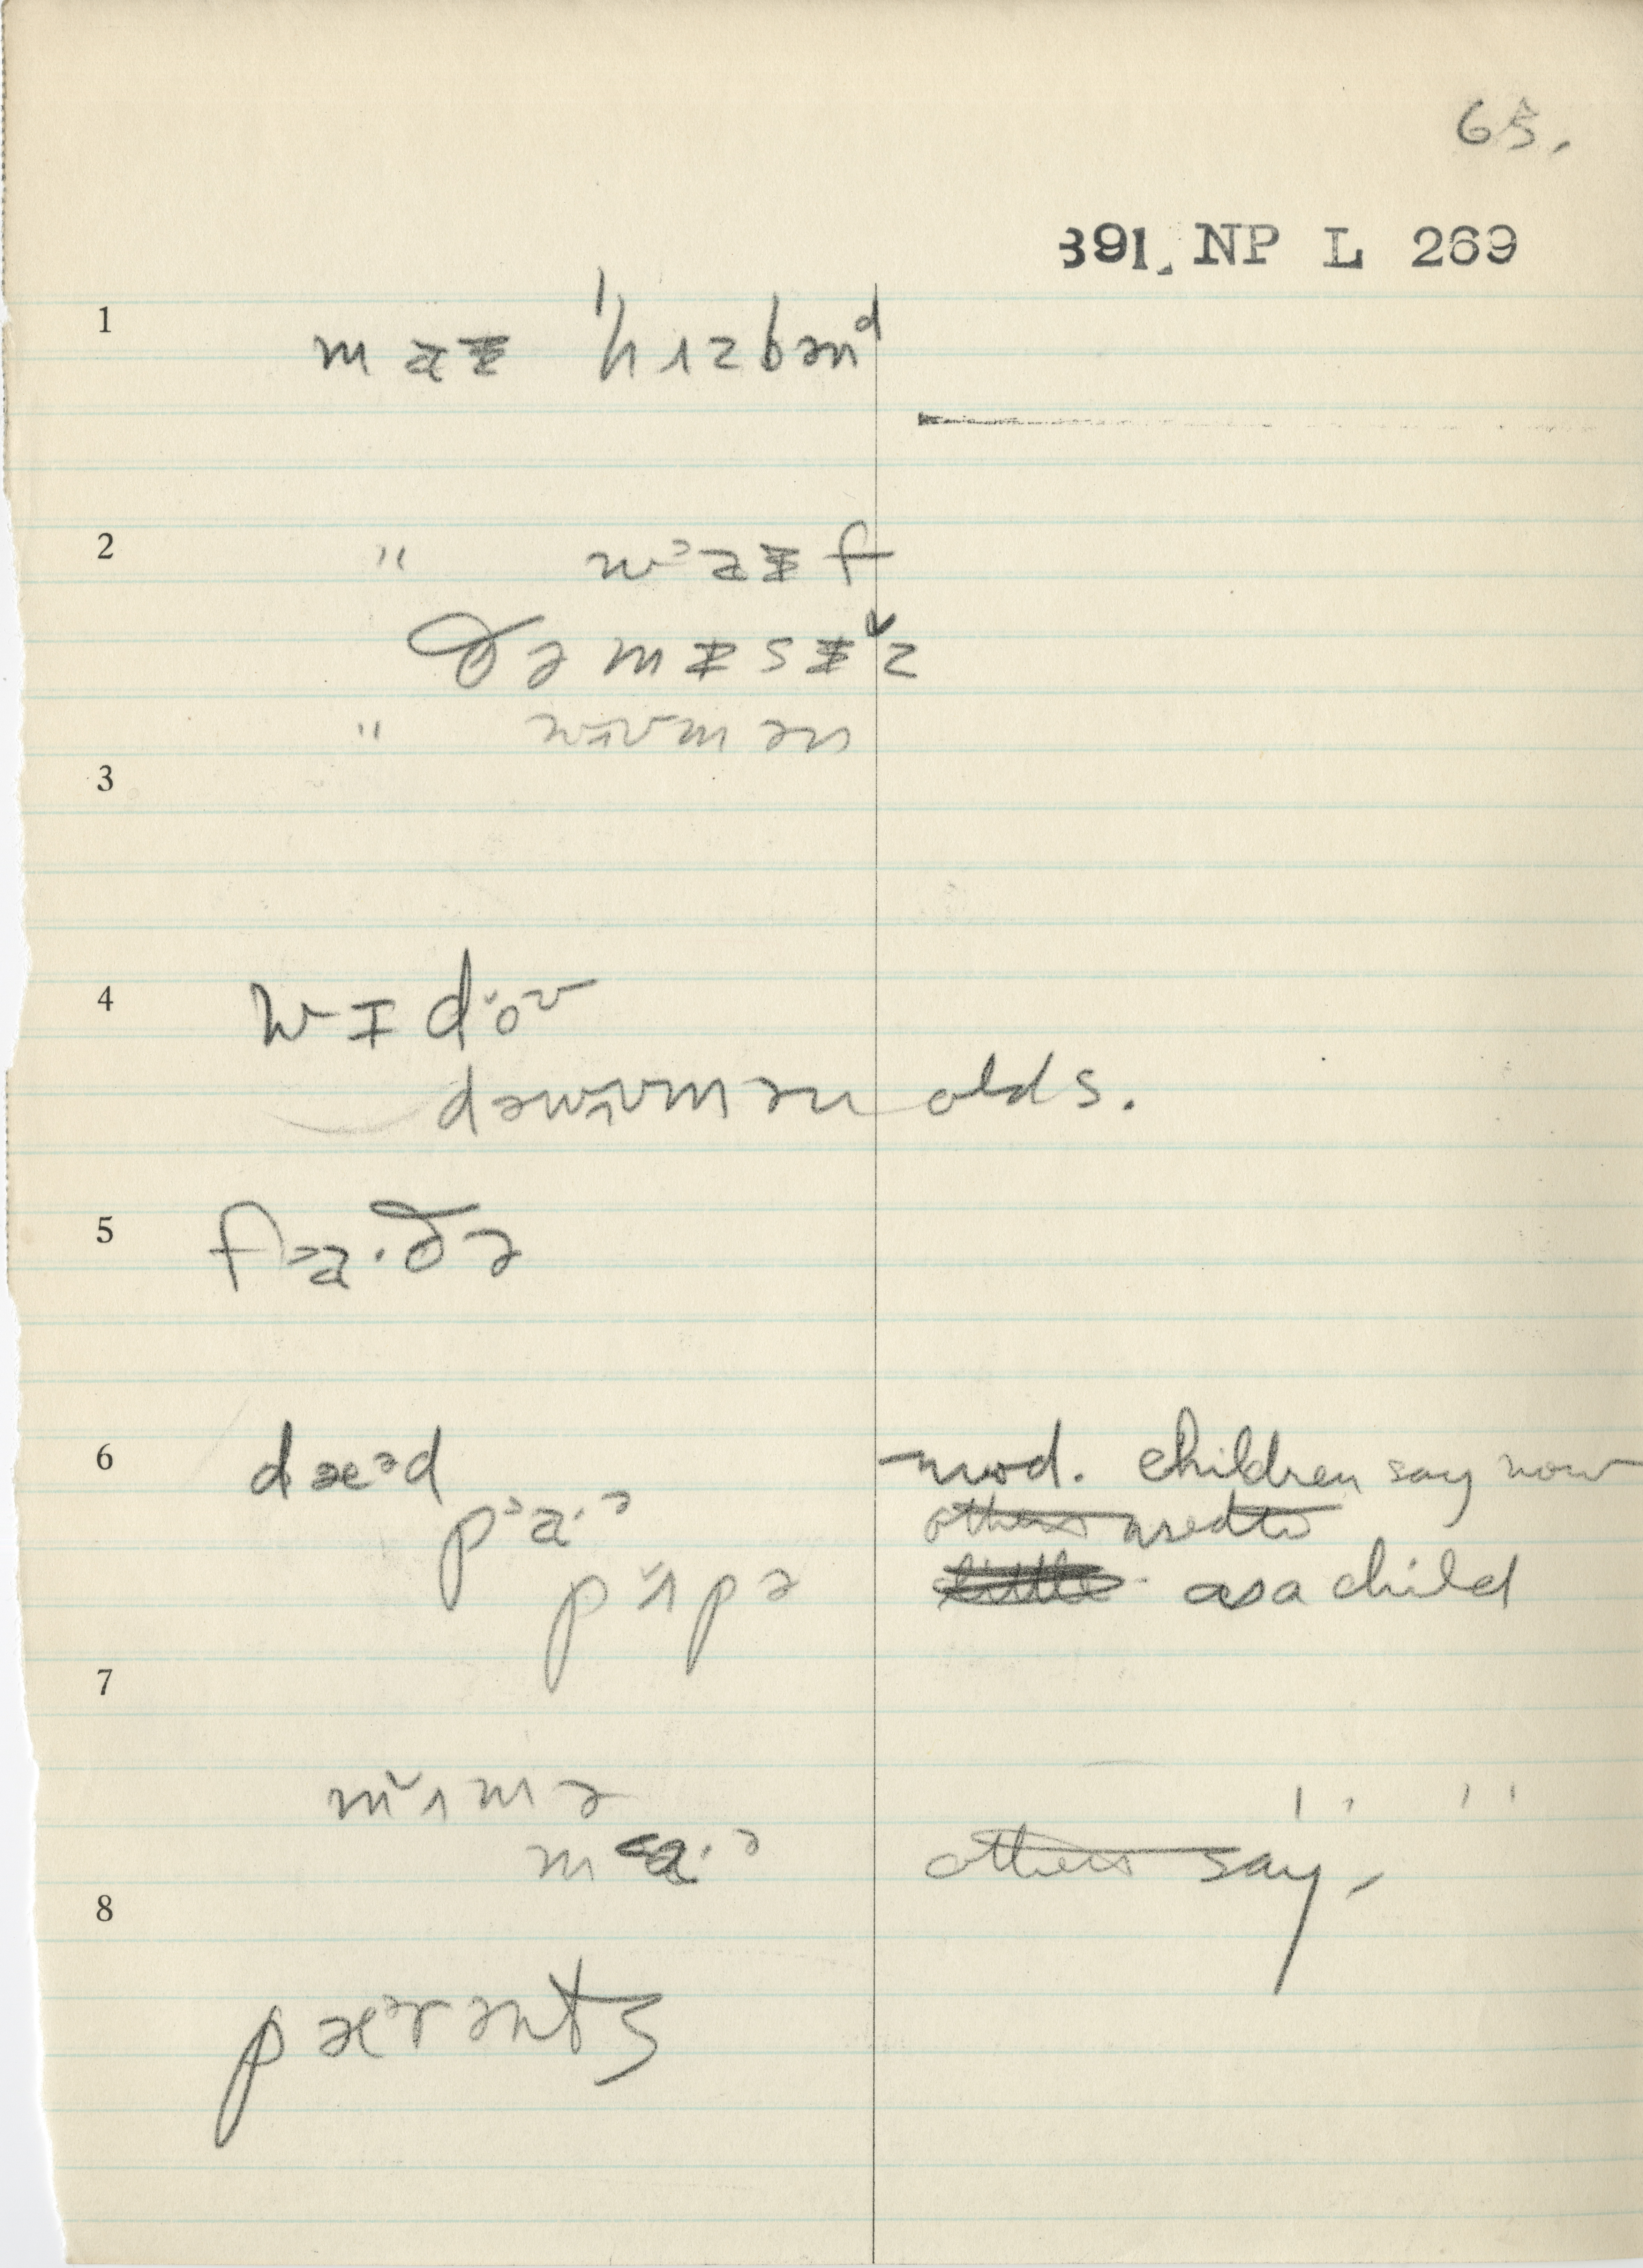 65.
391. NP L 269
1 maɨ ˈhɪzbənᵈ
2 " wᵊaɨf
ðə mɨsɨ̌z
" wʌʊmən
3
4 wɪdǒʊ
dəwʌʊmən olds.
5 fᵊa·ðə
6 dæᵊd mod. children say now
pᵊa·ᵊ others used to
pʌ̌pə as a child
7
mʌ̌mə " "
ma·ᵊ others say.
8
pæᵊrənts